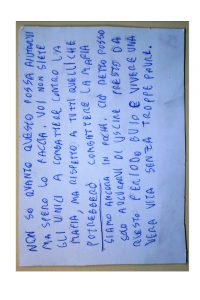 NON SO QUANTO QUESTO POSSA AIUTARVI
MA SPERO LO FACCIA. VOI NON SIETE
GLI UNICI A COMBATTERE CONTRO LA
MAFIA MA RISPETTO A TUTTI QUELLI CHE
POTREBBERO COMBATTERE LA MAFIA
SIAMO ANCORA IN POCHI. CIÒ DETTO POSSO
SOLO AUGURARVI DI USCIRE PRESTO DA
QUESTO PERIODO BUIO E VIVERE UNA
VERA VITA SENZA TROPPE PAURE.